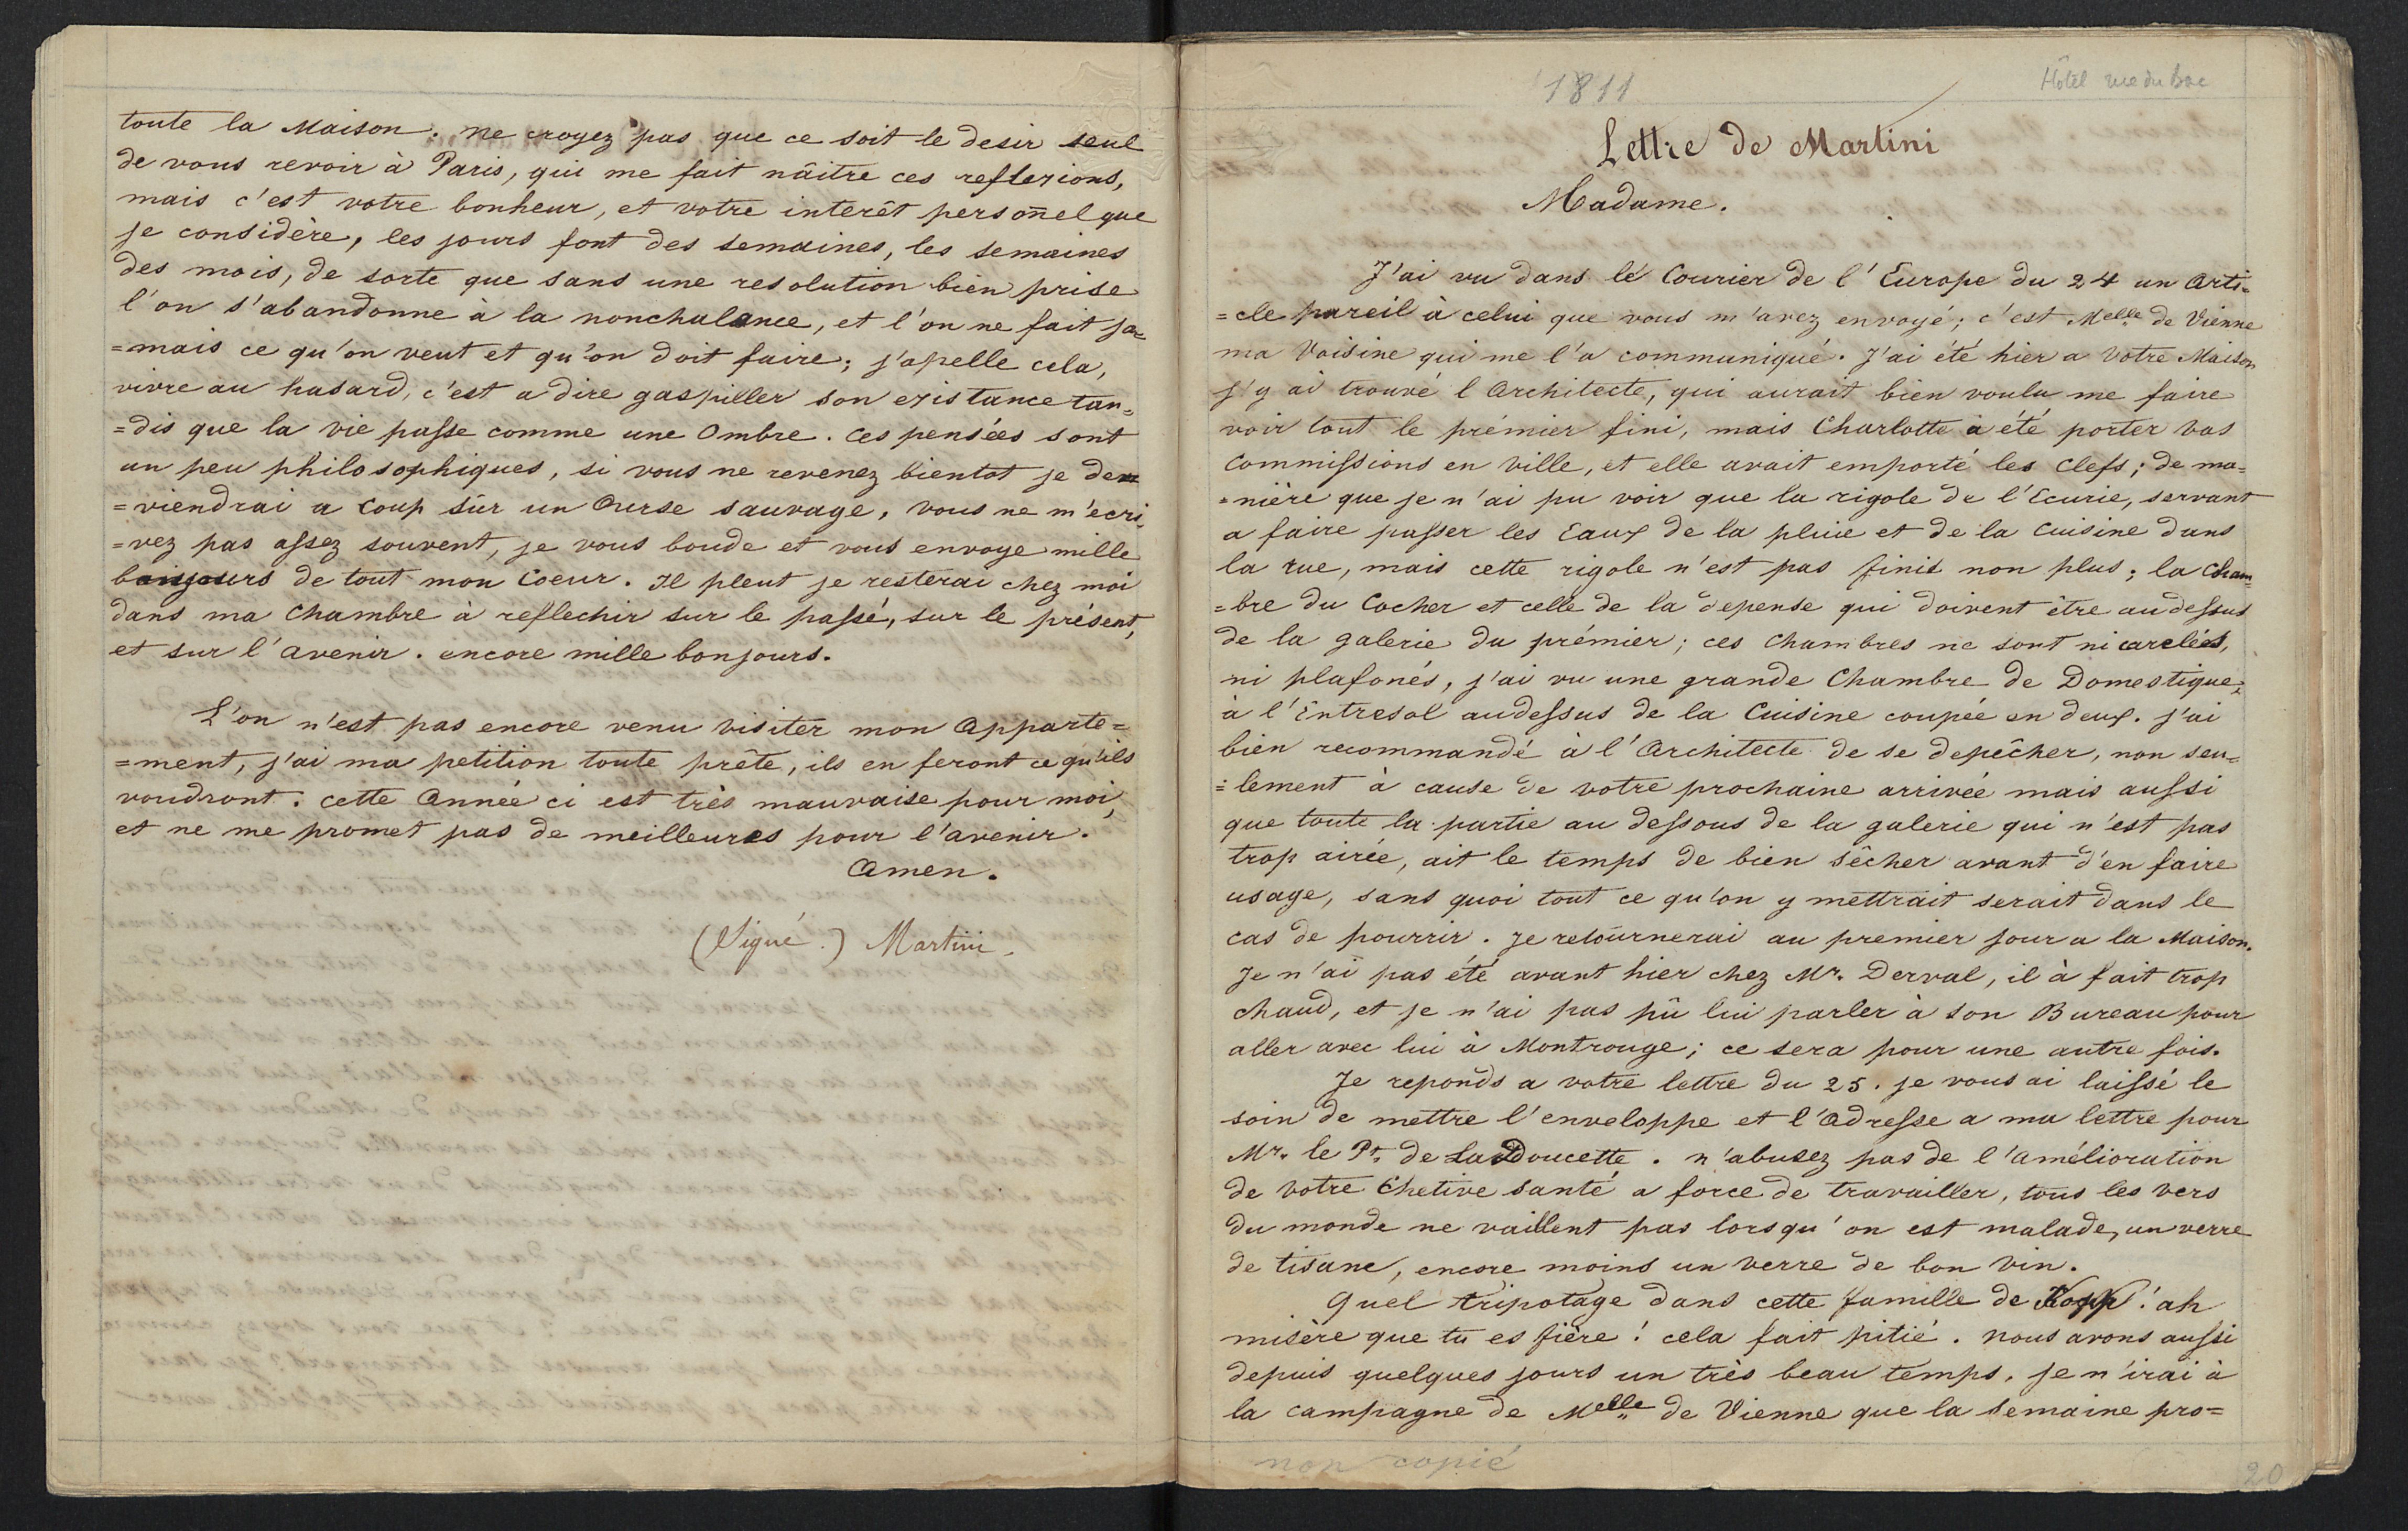 toute la Maison. ne croyez pas que ce soit le desir seul
de vous revoir à Paris, qui me fait nâitre ces reflexions,
mais c'est votre bonheur, et votre interêt personel que
je considère, les jours font des semaines, les semaines
des mois, de sorte que sans une resolution bien prise
l'on s'abandonne à la nonchalance, et l'on ne fait ja=
=mais ce qu'on veut et qu'on doit faire; j'apelle cela,
vivre au hasard, c'est a dire gaspiller son existance tan=
=dis que la vie passe comme une Ombre. Ces pensées sont
un peu philosophiques, si vous ne revenez bientot je de
=viendrai a Coup sûr un Ourse sauvage, vous ne m'ecri=
=vez pas assez souvent, je vous boude et vous envoye mille
bonjours de tout mon Coeur. Il pleut je resterai chez moi
dans ma Chambre à reflechir sur le passé, sur le présent,
et sur l'avenir. encore mille bonjours.
L'on n'est pas encore venu visiter mon Apparte=
=ment, j'ai ma petition toute prête, ils en feront ce qu'ils
voudront. cette Année ci est très mauvaise pour moi,
et ne me promet pas de meilleures pour l'avenir.
Amen.
(Signé.) Martini.
1811
Hôtel rue du Bac
Lettre de Martini
Madame.
J'ai vu dans le Courier de l'Europe du 24 un Arti=
=cle pareil à celui que vous m'avez envoyé; c'est Melle de Vienne
ma Voisine qui me l'a communiqué. J'ai été hier a Votre Maison
j'y ai trouvé l Architecte, qui aurait bien voulu me faire
voir tout le prémier fini, mais Charlotte à été porter vos
Commissions en Ville, et elle avait emporté les Clefs; de ma=
=nière que je n'ai pu voir que la rigole de l'Ecurie, servant
a faire passer les Eaux de la pluie et de la Cuisine dans
la rue, mais cette rigole n'est pas finie non plus; la Cham=
=bre du Cocher et celle de la depense qui doivent être audessus
de la galerie du prémier; ces Chambres ne sont ni carelées,
ni plafonés, j'ai vu une grande Chambre de Domestique,
à l'Entresol audessus de la Cuisine coupée en deux. j'ai
bien recommandé à l'Architecte de se depêcher, non seu=
=lement à cause de votre prochaine arrivée mais aussi
que toute la partie au dessous de la galerie qui n'est pas
trop airée, ait le temps de bien sêcher avant d'en faire
usage, sans quoi tout ce qu'on y mettrait serait dans le
cas de pourrir. Je retournerai au premier jour a la Maison.
Je n'ai pas été avant hier chez Mr. Derval, il à fait trop
chaud, et je n'ai pas pû lui parler à son Bureau pour
aller avec lui à Montrouge; ce sera pour une autre fois.
Je reponds a votre lettre du 25. je vous ai laissé le
soin de mettre l'enveloppe et l'Adresse a ma lettre pour
Mr. le Pt. de LaDoucette. n'abusez pas de l'amélioration
de Votre Chetive Santé a force de travailler, tous les vers
du monde ne vaillent pas lorsqu'on est malade, un verre
de tisane, encore moins un verre de bon Vin.
Quel tripotage dans cette famille de ! ah
misère que tu es fière! cela fait pitié. nous avons aussi
depuis quelques jours un très beau temps, je n'irai à
la campagne de Melle de Vienne que la Semaine pro=
non copié
20